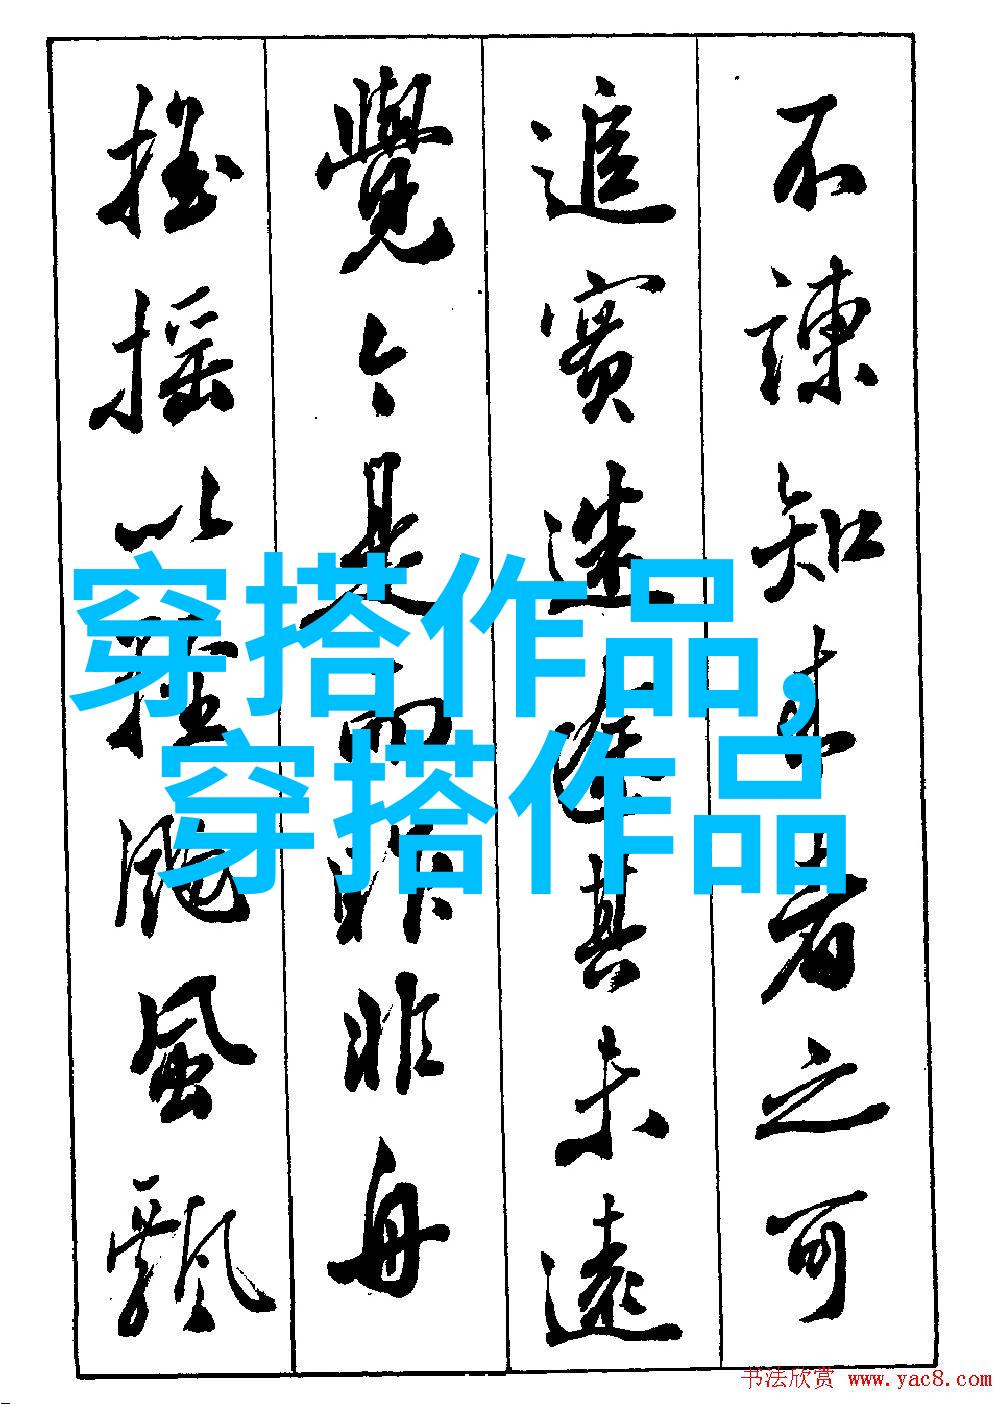 不諫知来者之可
追實迷途其未遠
覺今是而昨非舟
摇摇以輕颺風飄
穿搭作品,
穿搭作品
书法欣赏 www.yac8.com